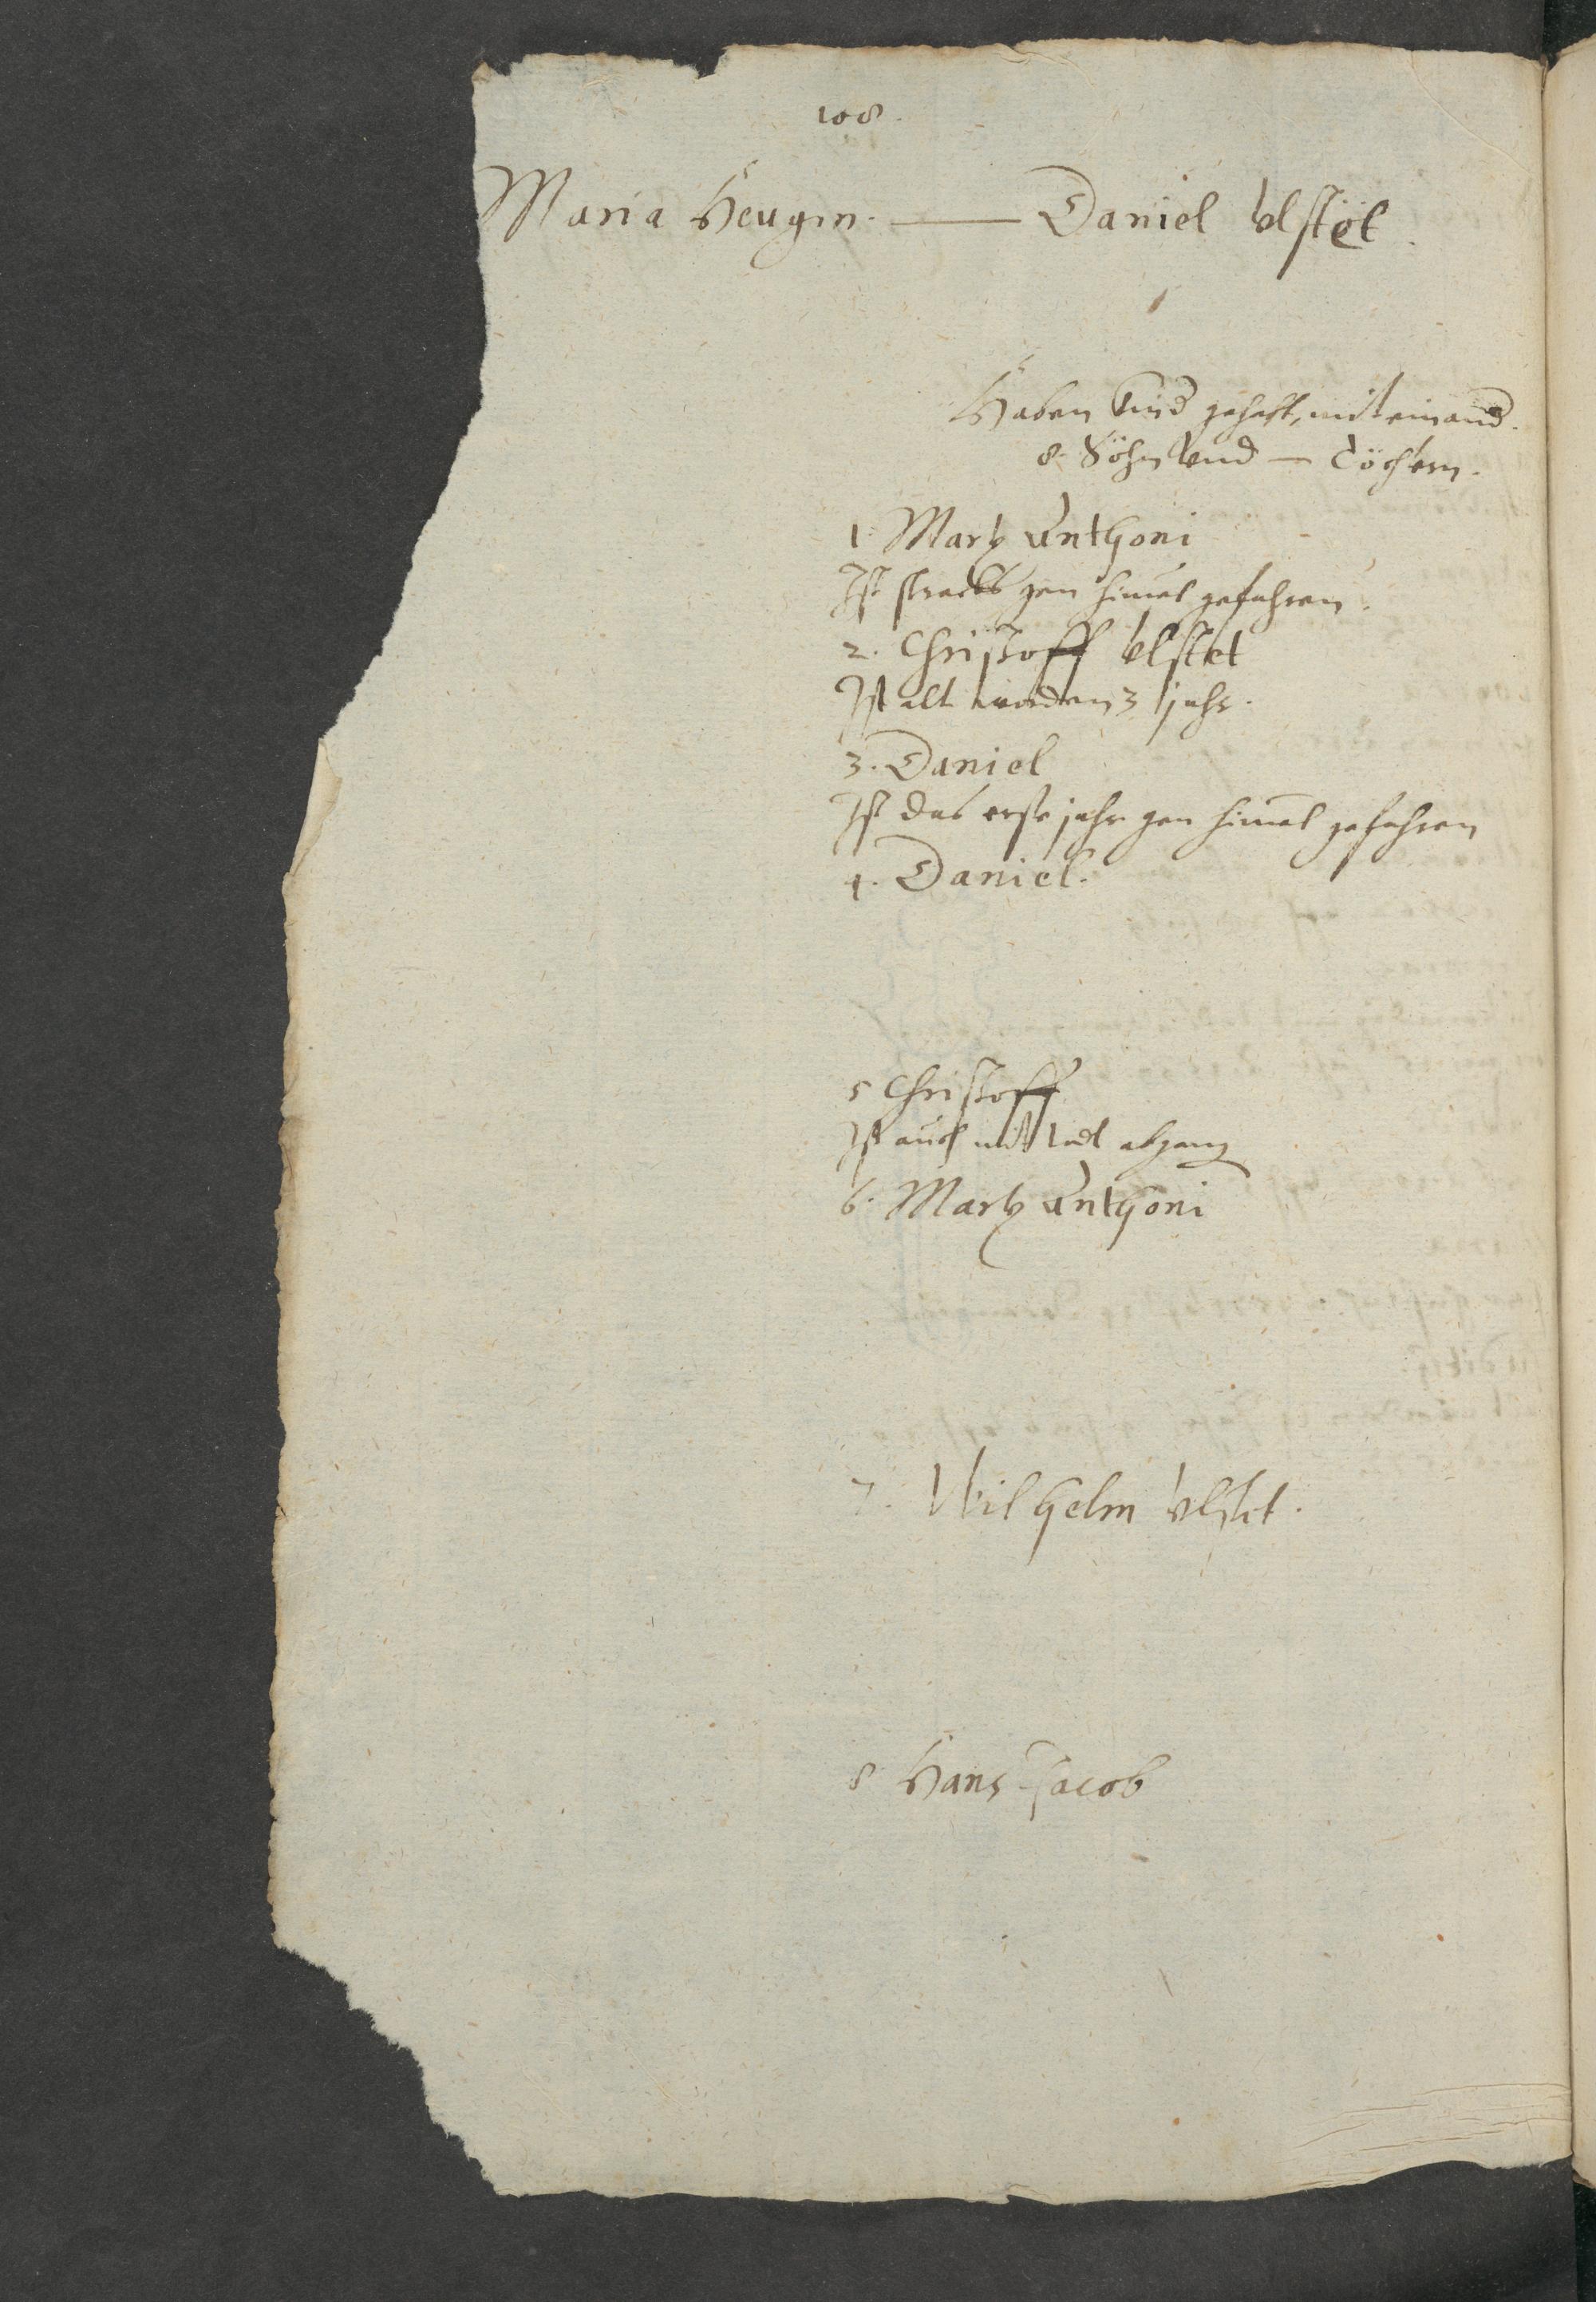 108.
Maria Heugin. — Daniel Vlstet.
Haben kind gehabt, mit einand.
8. Söhn vnd — Töchtern.
1. Marx Anthoni
Ist stracks gen himel gefahren.
2. Christoff Vlstet
Ist alt worden 3 jahr.
3. Daniel
Ist das erste jahr gen himel gefahren
4. Daniel.
5 Christoff
Ist auch mit tod abgang
6. Marx Anthoni
7. Wilhelm Vlstet.
8 Hans Jacob